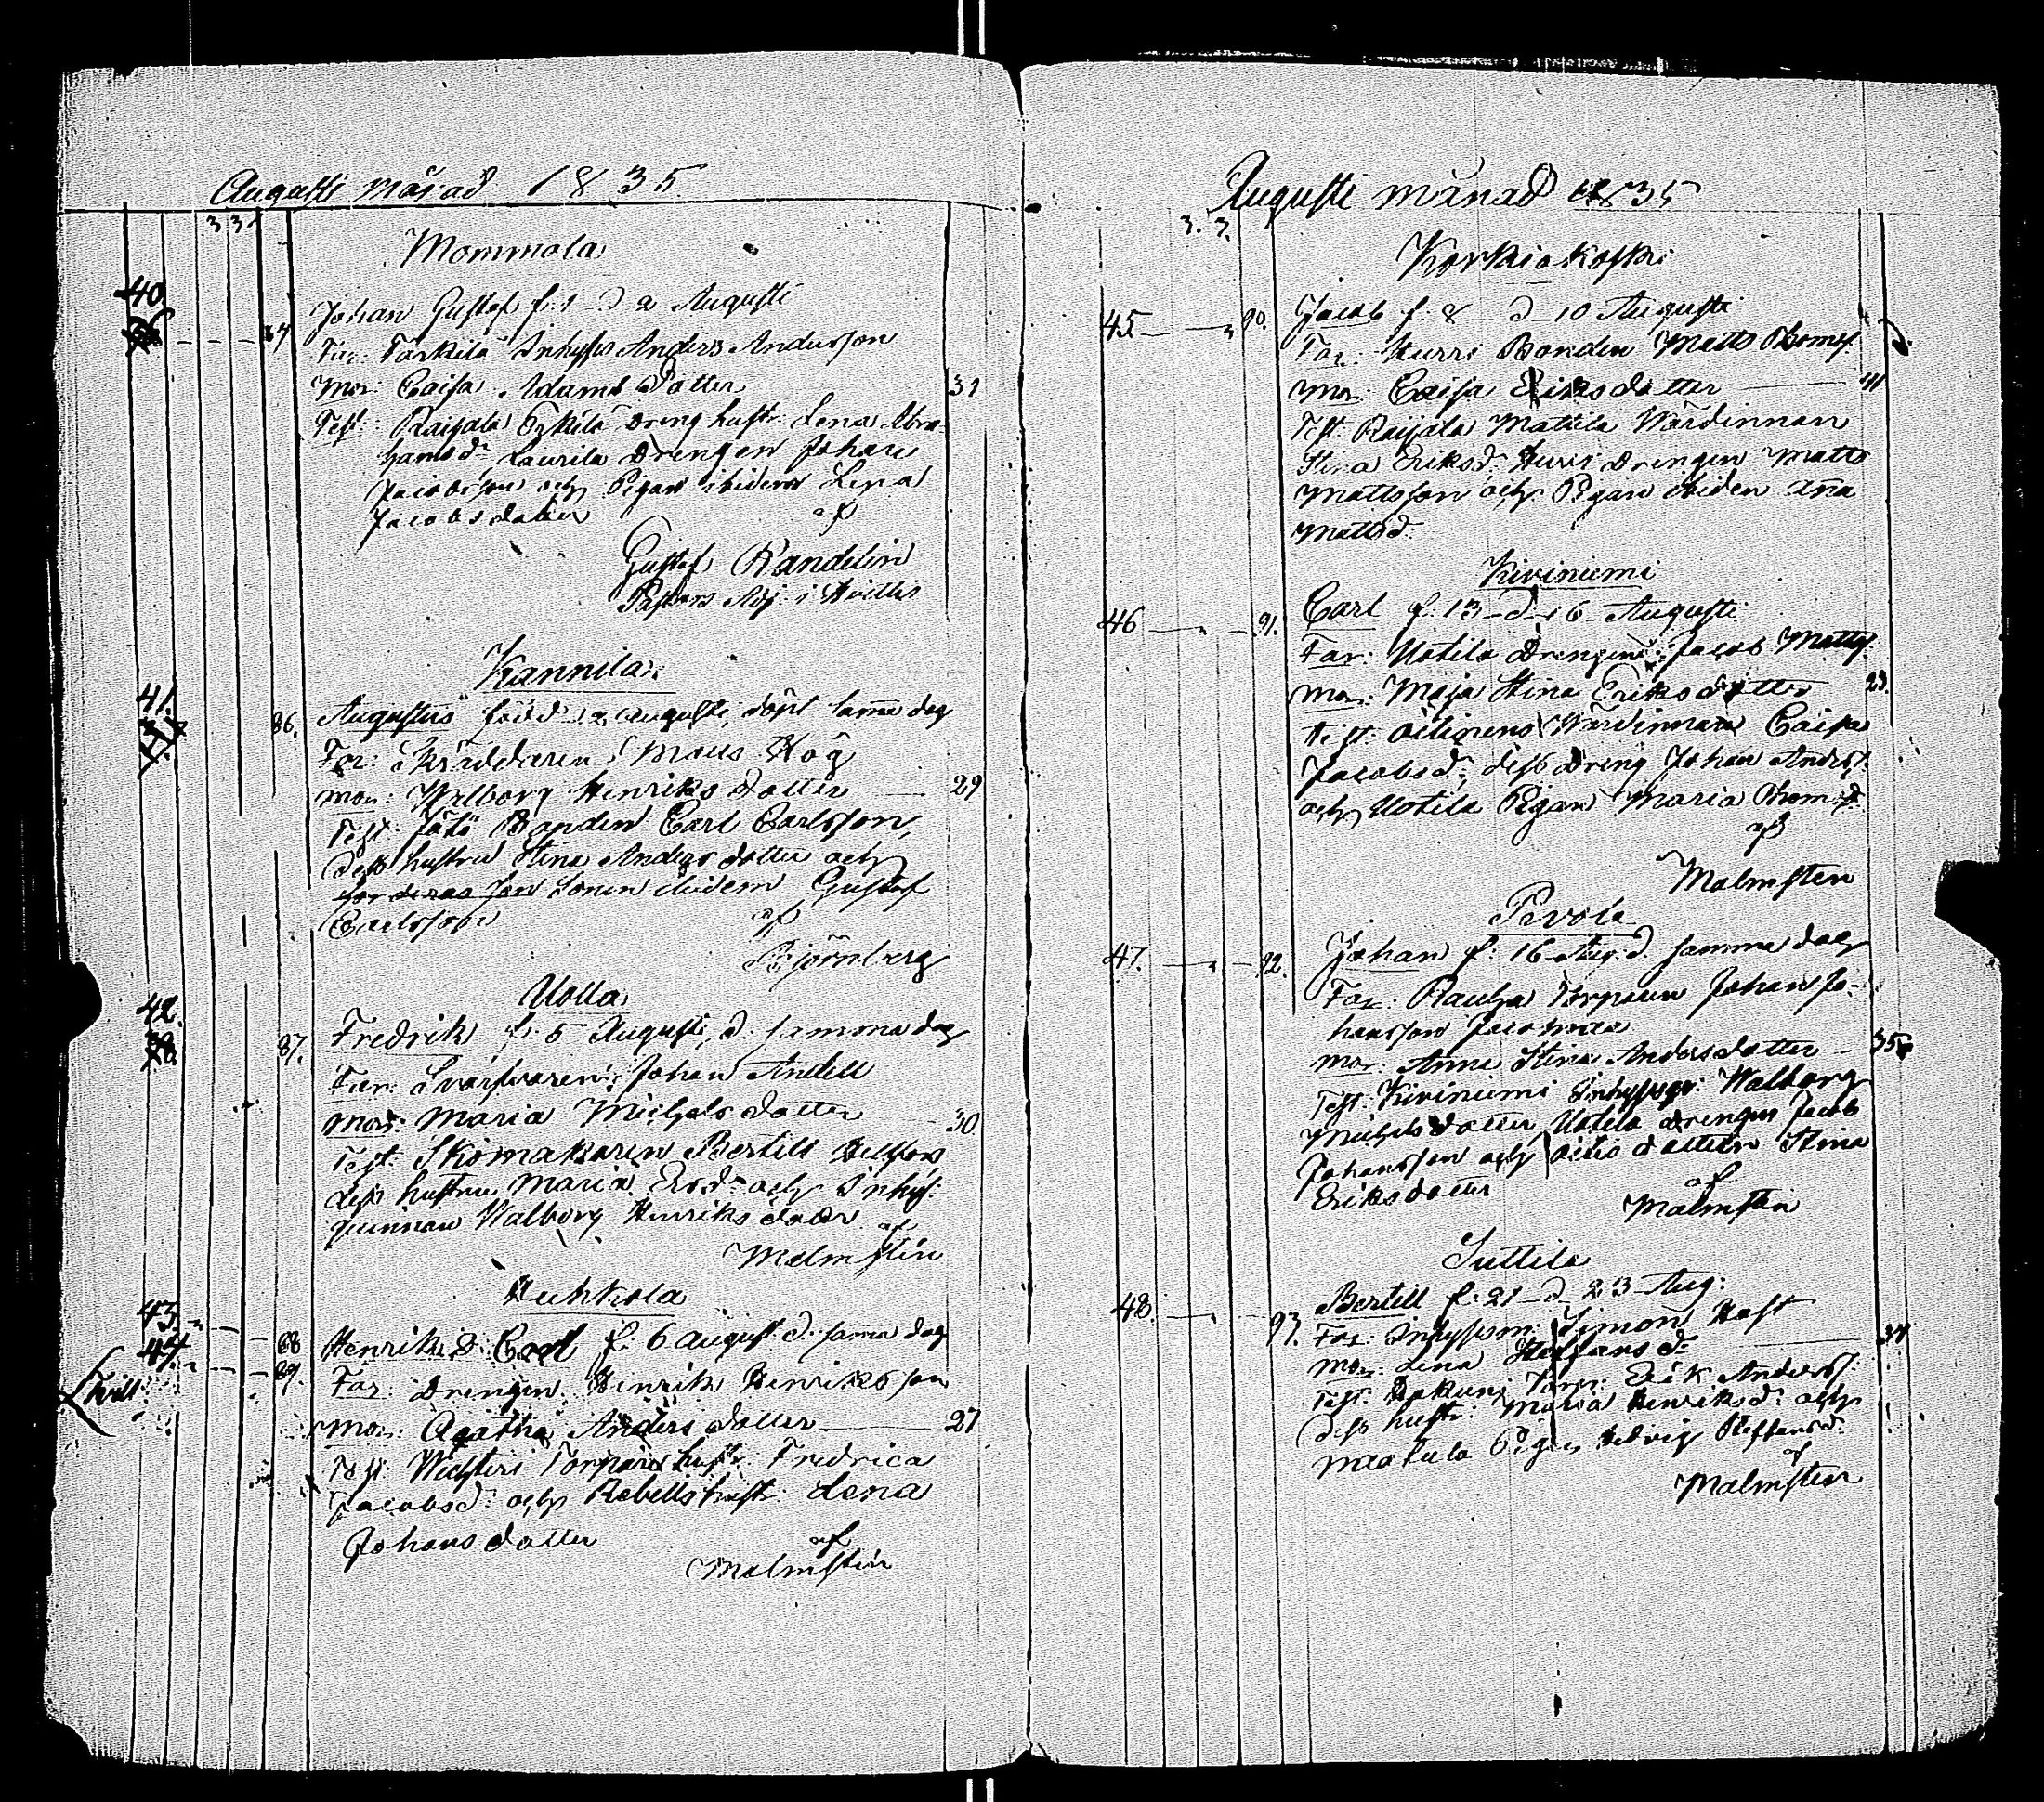 Augusti månad 1835.
3 3.
Mommola
40
Johan Gustaf f: 1 d 2 Augusti
Far: Inhyses Anders Andersson
Mor: Caisa Adams Dotter 31
Test: Raijala Erkilä Dreng hustr: Lena Abra-
hamsdr Laurila Drengen Johan
Jacobsson och Pigan ibidem Lena
Jacobsdotter af
Gustaf Randelin
Pastors Adj: i Hvittis
Kannila
41.
86. Augustus född 2 augusti, döpt samma dag
Far: Skräddaren Maus Hög
Mor: Walborg Henriks dotter 29
Test: Bonden Carl Carlsson,
dess hustru Stina Anders dotter och
Sonen ibidem Gustaf
Carlsson af
Björnberg
Uotta
42.
87. Fredrik f: 5 Augusti, d. samma dag
Far: Svarfvaren Johan Andell
Mor: Maria Michels dotter 30.
Test: Skomakaren Bertill
dess hustru Maria och Inhys:
qvinnan Walborg Henriks dotr af
Malmstén
Huhkola
43
88 Henrik & Carl f. 6 august d. samma dag
44. 89. Far: Drengen Henrik Henriksson
Tvill:
Mor: Agatha Anders dotter 27
Test: Torpare hustr: Fredrica
Jacobsd: och Rebells hustr: Lena
Johans dotter af
Malmstén
Augusti månad 1835
3. 3.
Korkiakoski
45 90. Jacob f. 8 d 10 Augusti
Far: Kurri Bonden Matts Thomss:
Mor: Caisa Eriksdotter 41
Test: Raijala Mattila Wärdinnan
Stina Eriksd: Kurri Drengen Matts
Mattsson och Pigan ibidem Ana
Mattsd:
Kiviniemi
46 91. Carl f. 13 d 16 Augusti
Far: Uotila Drengen Jacob Mattss:
Mor: Maja Stina Eriksdotter 23.
Test: Wärdinnan Caisa
Jacobsd: dess Dreng Johan Anderss:
och Uotila Pigan Maria Thom:d:
af
Malmsten
Pevola
47. 92. Johan f: 16 Aug: d. samma dag
Far: Rauha Torparen Johan Jo-
hansson
Mor: Anna Stina Andersdotter 35
Test: Kiviniemi Inhysesqv: Walborg
Michels dotter, Uotila Drengen Jacob
Johansson och dottren Stina
Eriksdotter af
Malmsten
Suttila
48. 93. Bertill f: 21 d 23 Aug:
Far: Inhysesm: Simon Hast
Mor: Lena Staffansd: 34
Test: Torp: Erik Anderss:
dess hustr: Maria Henriksd: och
Pigan Hedvig Steffansd:
af
Malmsten